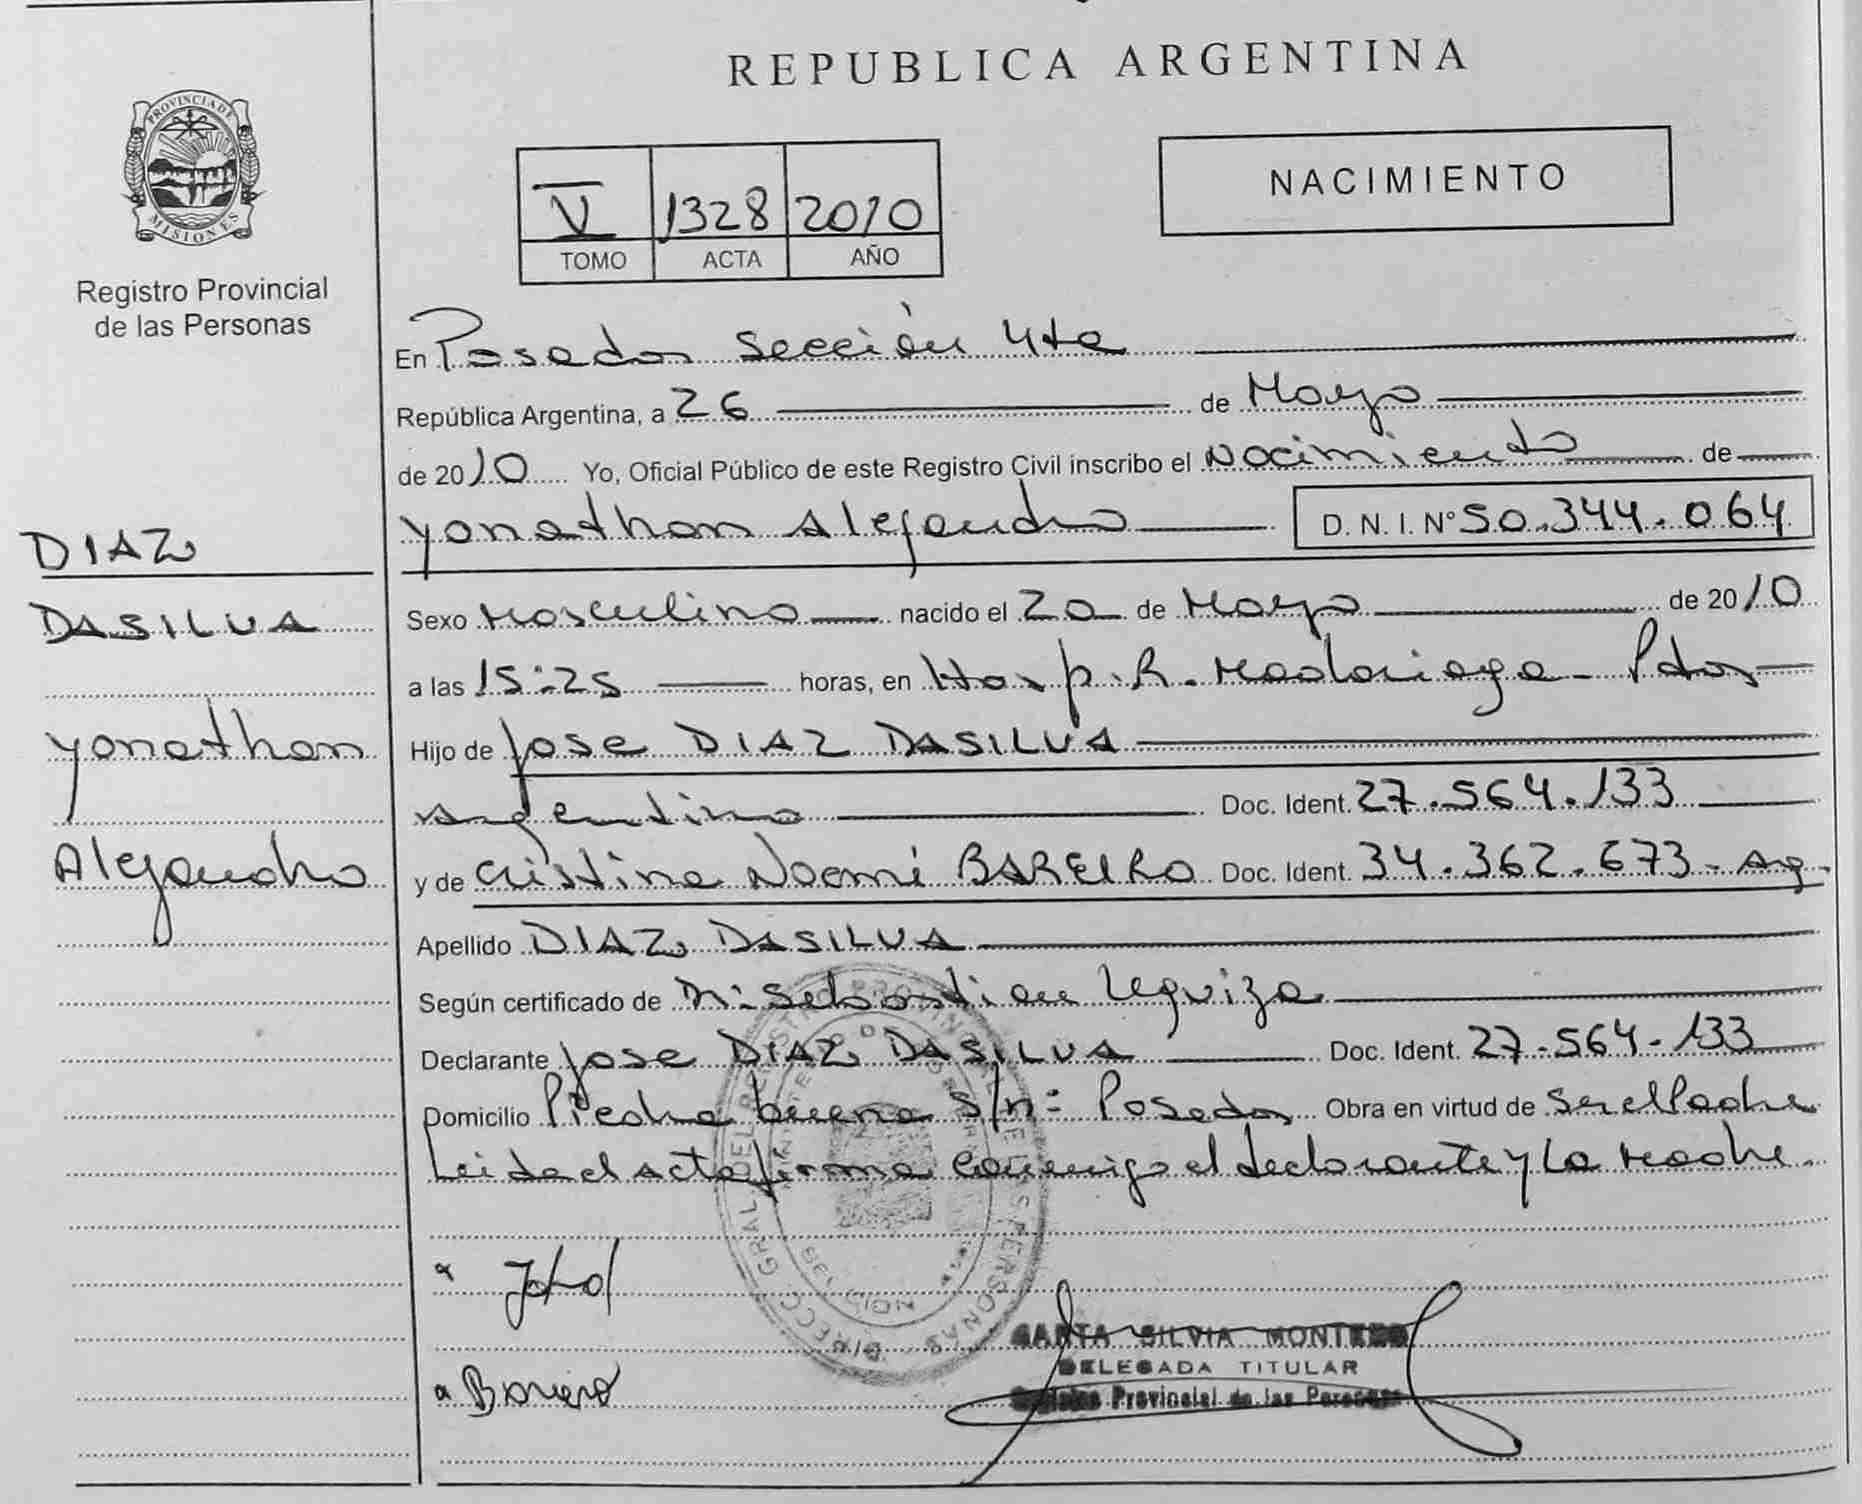 REPUBLICA ARGENTINA
PROVINCIA DE MISIONES
Registro Provincial
de las Personas
V 1328 2010
TOMO ACTA AÑO
NACIMIENTO
En Posadas Sección 4ta
República Argentina, a 26 de Mayo
de 2010 Yo, Oficial Público de este Registro Civil inscribo el Nacimiento de
Yonathan Alejandro D. N. I. Nº 50.344.064
DIAZ
DASILVA
Yonathan
Alejandro
Sexo Masculino nacido el 20 de Mayo de 2010
a las 15:25 horas, en Hosp. R. Madariaga - Pdas
Hijo de Jose DIAZ DASILVA
Argentino Doc. Ident. 27.564.133
y de Cristina Noemí BAREIRO Doc. Ident. 34.362.673 - Arg.
Apellido DIAZ DASILVA
Según certificado de Sebastian Leguiza
Declarante Jose DIAZ DASILVA Doc. Ident. 27-564-133
Domicilio Piedra buena S/nº Posadas Obra en virtud de Ser el Padre
Leida el Acta firma Conmigo el declarante y La Madre.
DIRECC. GRAL. DEL REGISTRO PROVINCIAL DE LAS PERSONAS
Bareiro
SILVIA MONTERO
DELEGADA TITULAR
Registro Provincial de las Personas